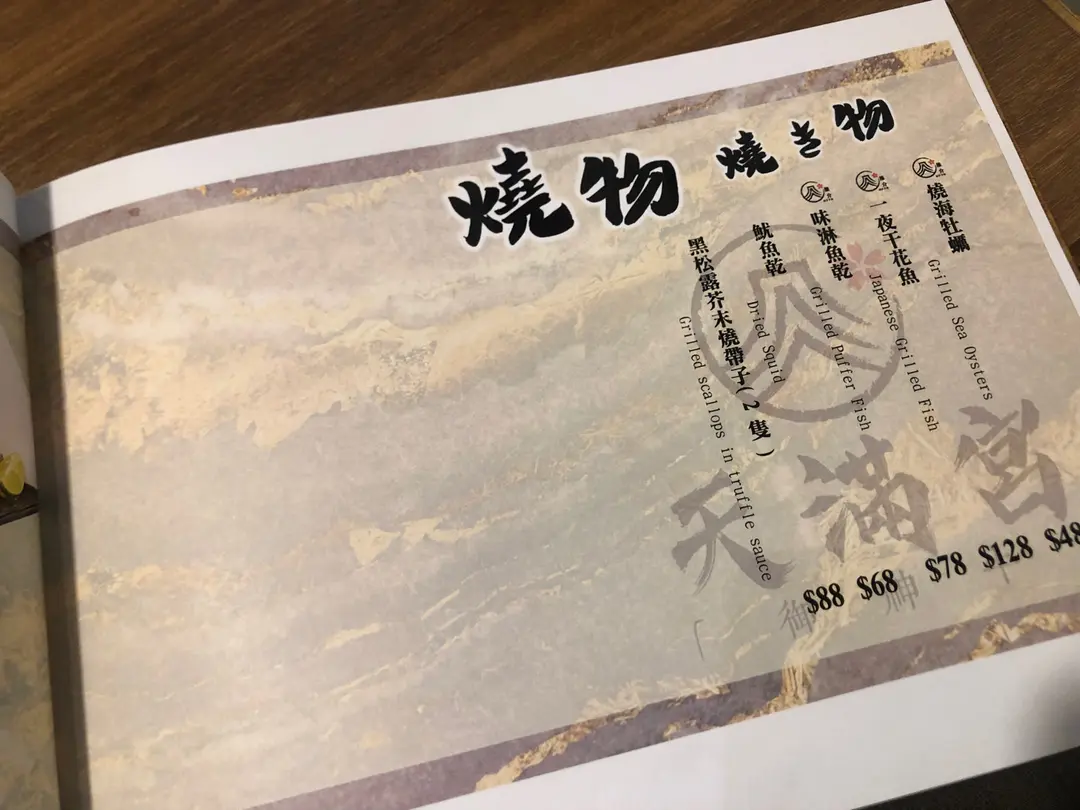 燒物 燒き物
燒海牡蠣
Grilled Sea Oysters
$48
一夜干花魚
Japanese Grilled Fish
$128
味淋魚乾
Grilled Puffer Fish
$78
魷魚乾
Dried Squid
$68
黑松露芥末燒帶子(2隻)
Grilled scallops in truffle sauce
$88
天滿宮